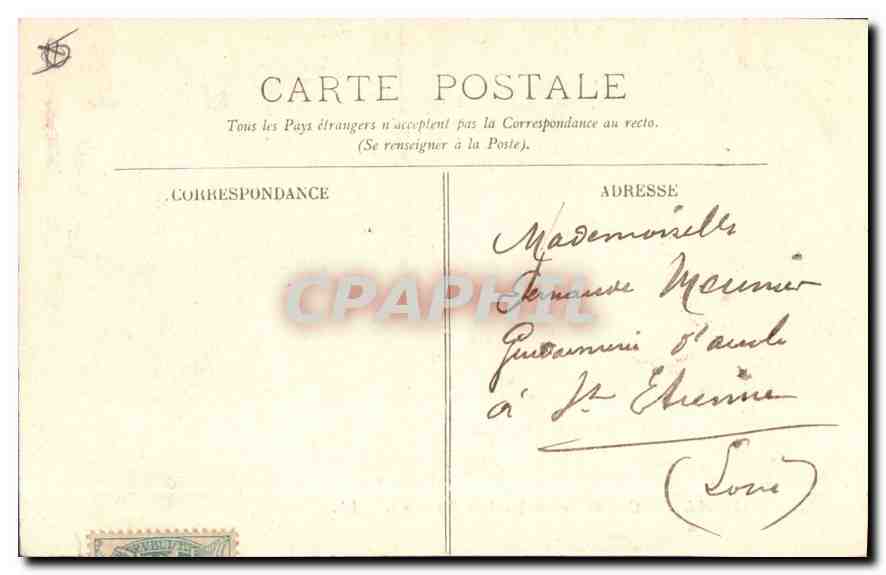 CARTE POSTALE
Tous les Pays étrangers n'acceptent pas la Correspondance au recto.
(Se renseigner à la Poste).
CORRESPONDANCE
ADRESSE
Mademoiselle
Fernande Meunier
Gendarmerie
à St Etienne
(Loire)
CPAPHIL